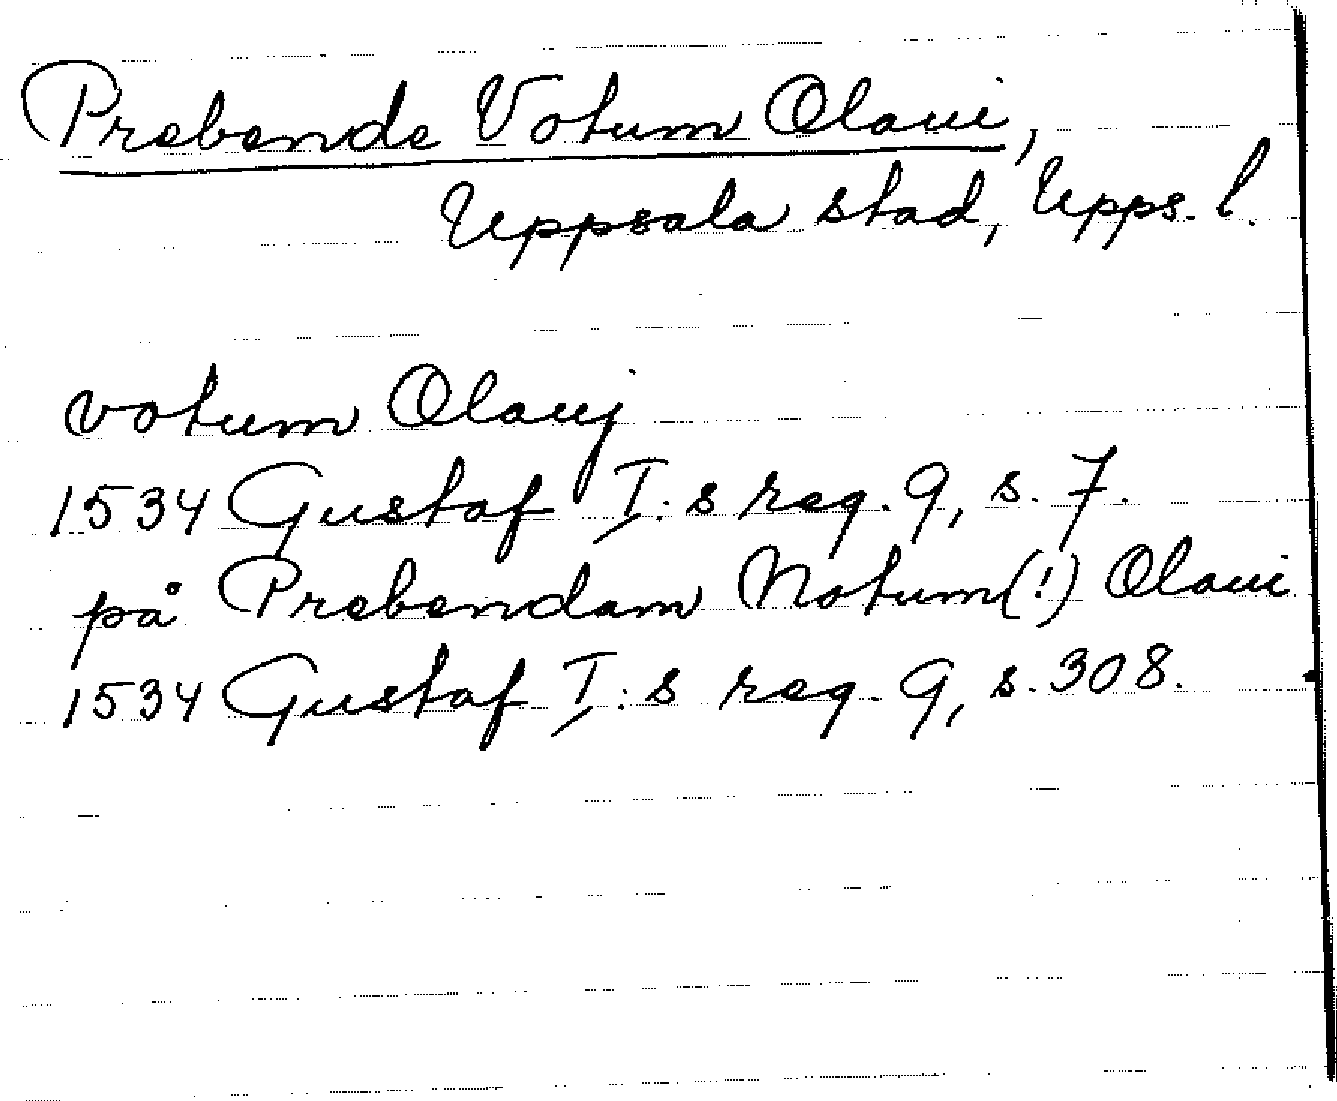 Prebende Votum Olaui,
Uppsala stad, Upps. l.
votum Olauj
1534 Gustaf I:s reg. 9, s. 7.
på Prebendam Notum(!) Olaui
1534 Gustaf I:s reg. 9, s. 308.